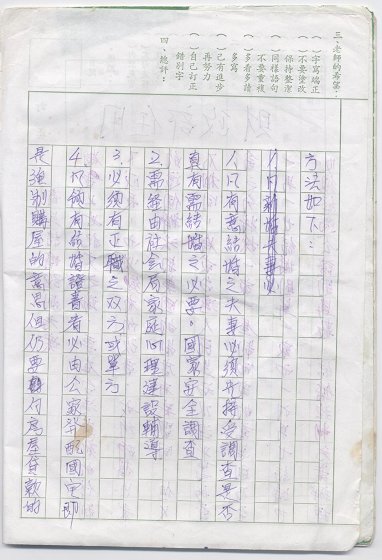 三、老師的希望：
（　）字寫端正
（　）不要塗改
保持整潔
（　）同樣語句
不要重複
（　）多看多讀
多寫
（　）已有進步
再努力
（　）自己訂正
錯別字
四、總評：
方法如下：
人只有意結婚之夫妻必須先接受調查是否
真有需結婚之必要。國家安全調查
2.需經由社会局家庭心理建設輔導
3.必须有正職之双方或單方
4.凡領有結婚證書者必由公家分配國宅即
是強制購屋的意思但仍要付房屋貸款的